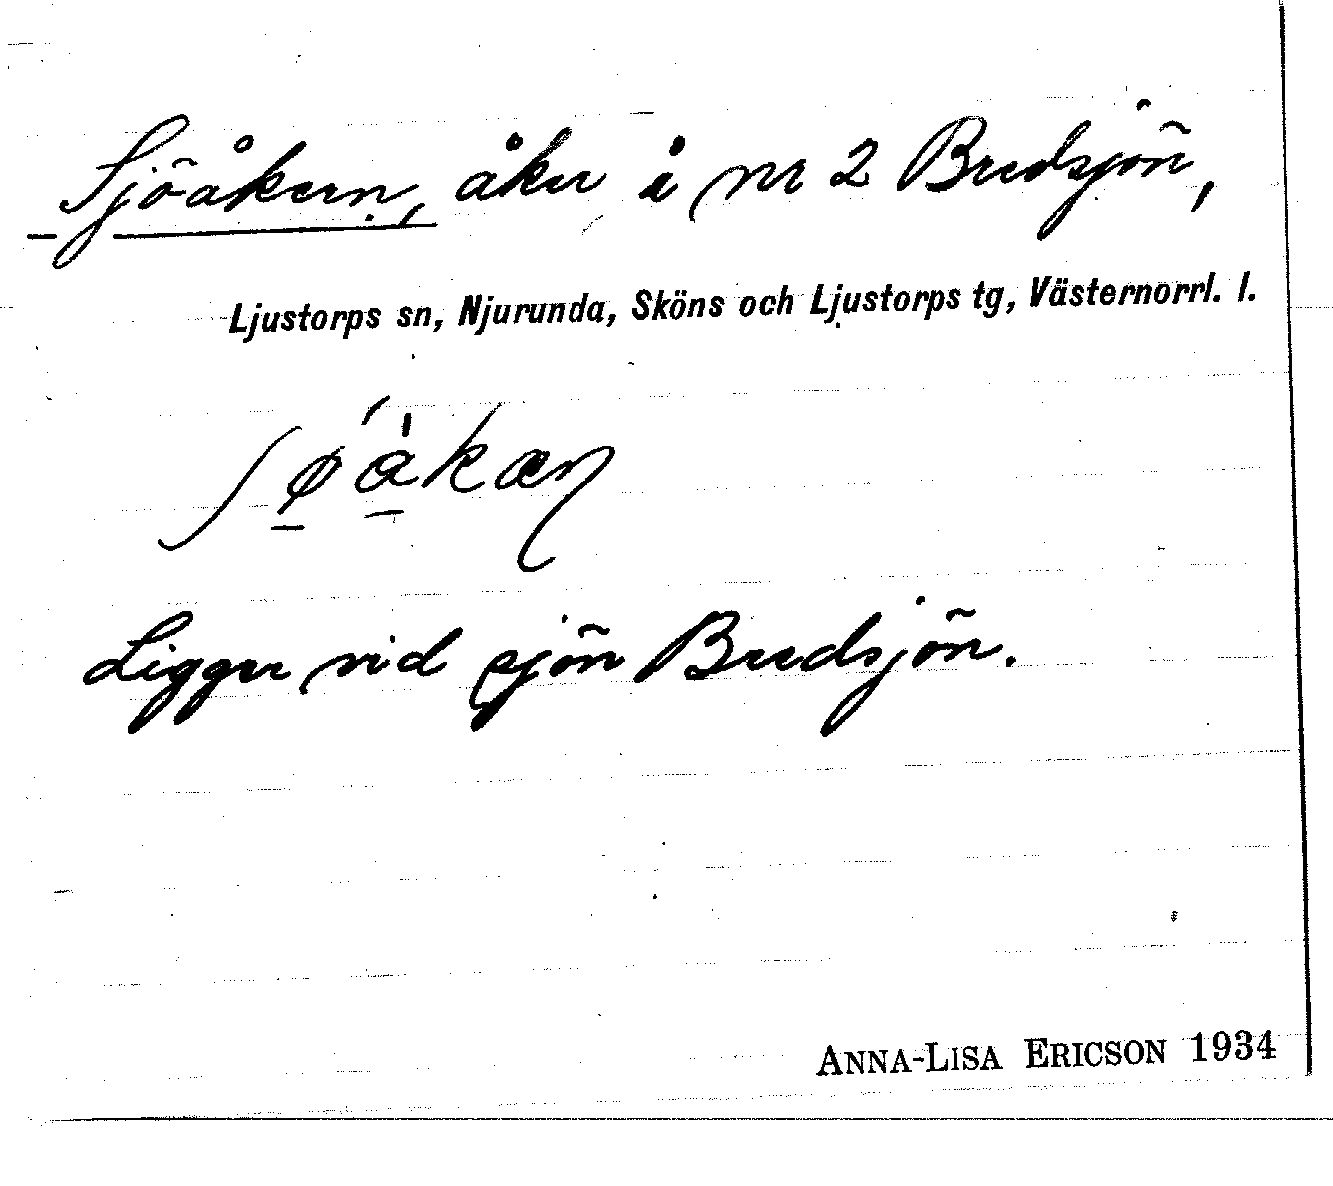 Sjöåkern, åker å nr 2 Bredsjön,
Ljustorps sn, Njurunda, Sköns och Ljustorps tg, Västernorrl. l.
Ligger vid sjön Bredsjön.
ANNA-LISA ERICSON 1934